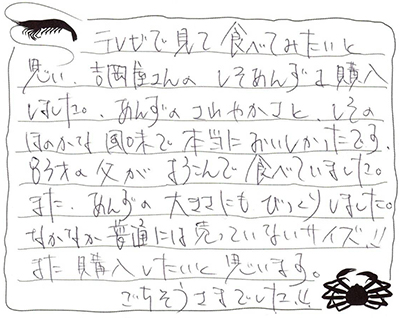 テレビで見て食べてみたいと
思い、吉岡屋さんのしそあんずを購入
しました。あんずのさわやかさと、しその
ほのかな風味で本当においしかったです。
83才の父がよろこんで食べていました。
また、あんずの大きさにもびっくりしました。
なかなか普通には売っていないサイズ!!
また購入したいと思います。
ごちそうさまでした!!